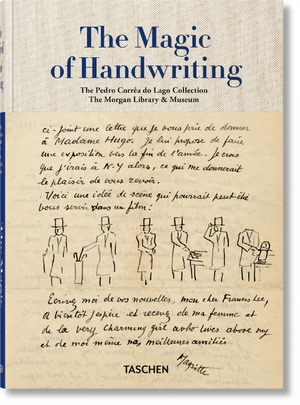 The Magic
of Handwriting
The Pedro Corrêa do Lago Collection
The Morgan Library & Museum
ci-joint une lettre que je vous prie de donner
à Madame Hugo. Je lui propose de faire
une exposition vers la fin de l'année. Je crois
que j'irais à N-Y alors, ce qui me donnerait
le plaisir de vous revoir.
Voici une idée de scène qui pourrait peut être
vous servir dans un film:
Ecrivez moi de vos nouvelles, mon cher Francis Lee,
A bientôt j'espère et recevez de ma femme et
de la very charming girl who lives above my
et de moi même nos meilleures amitiés
Magritte
TASCHEN